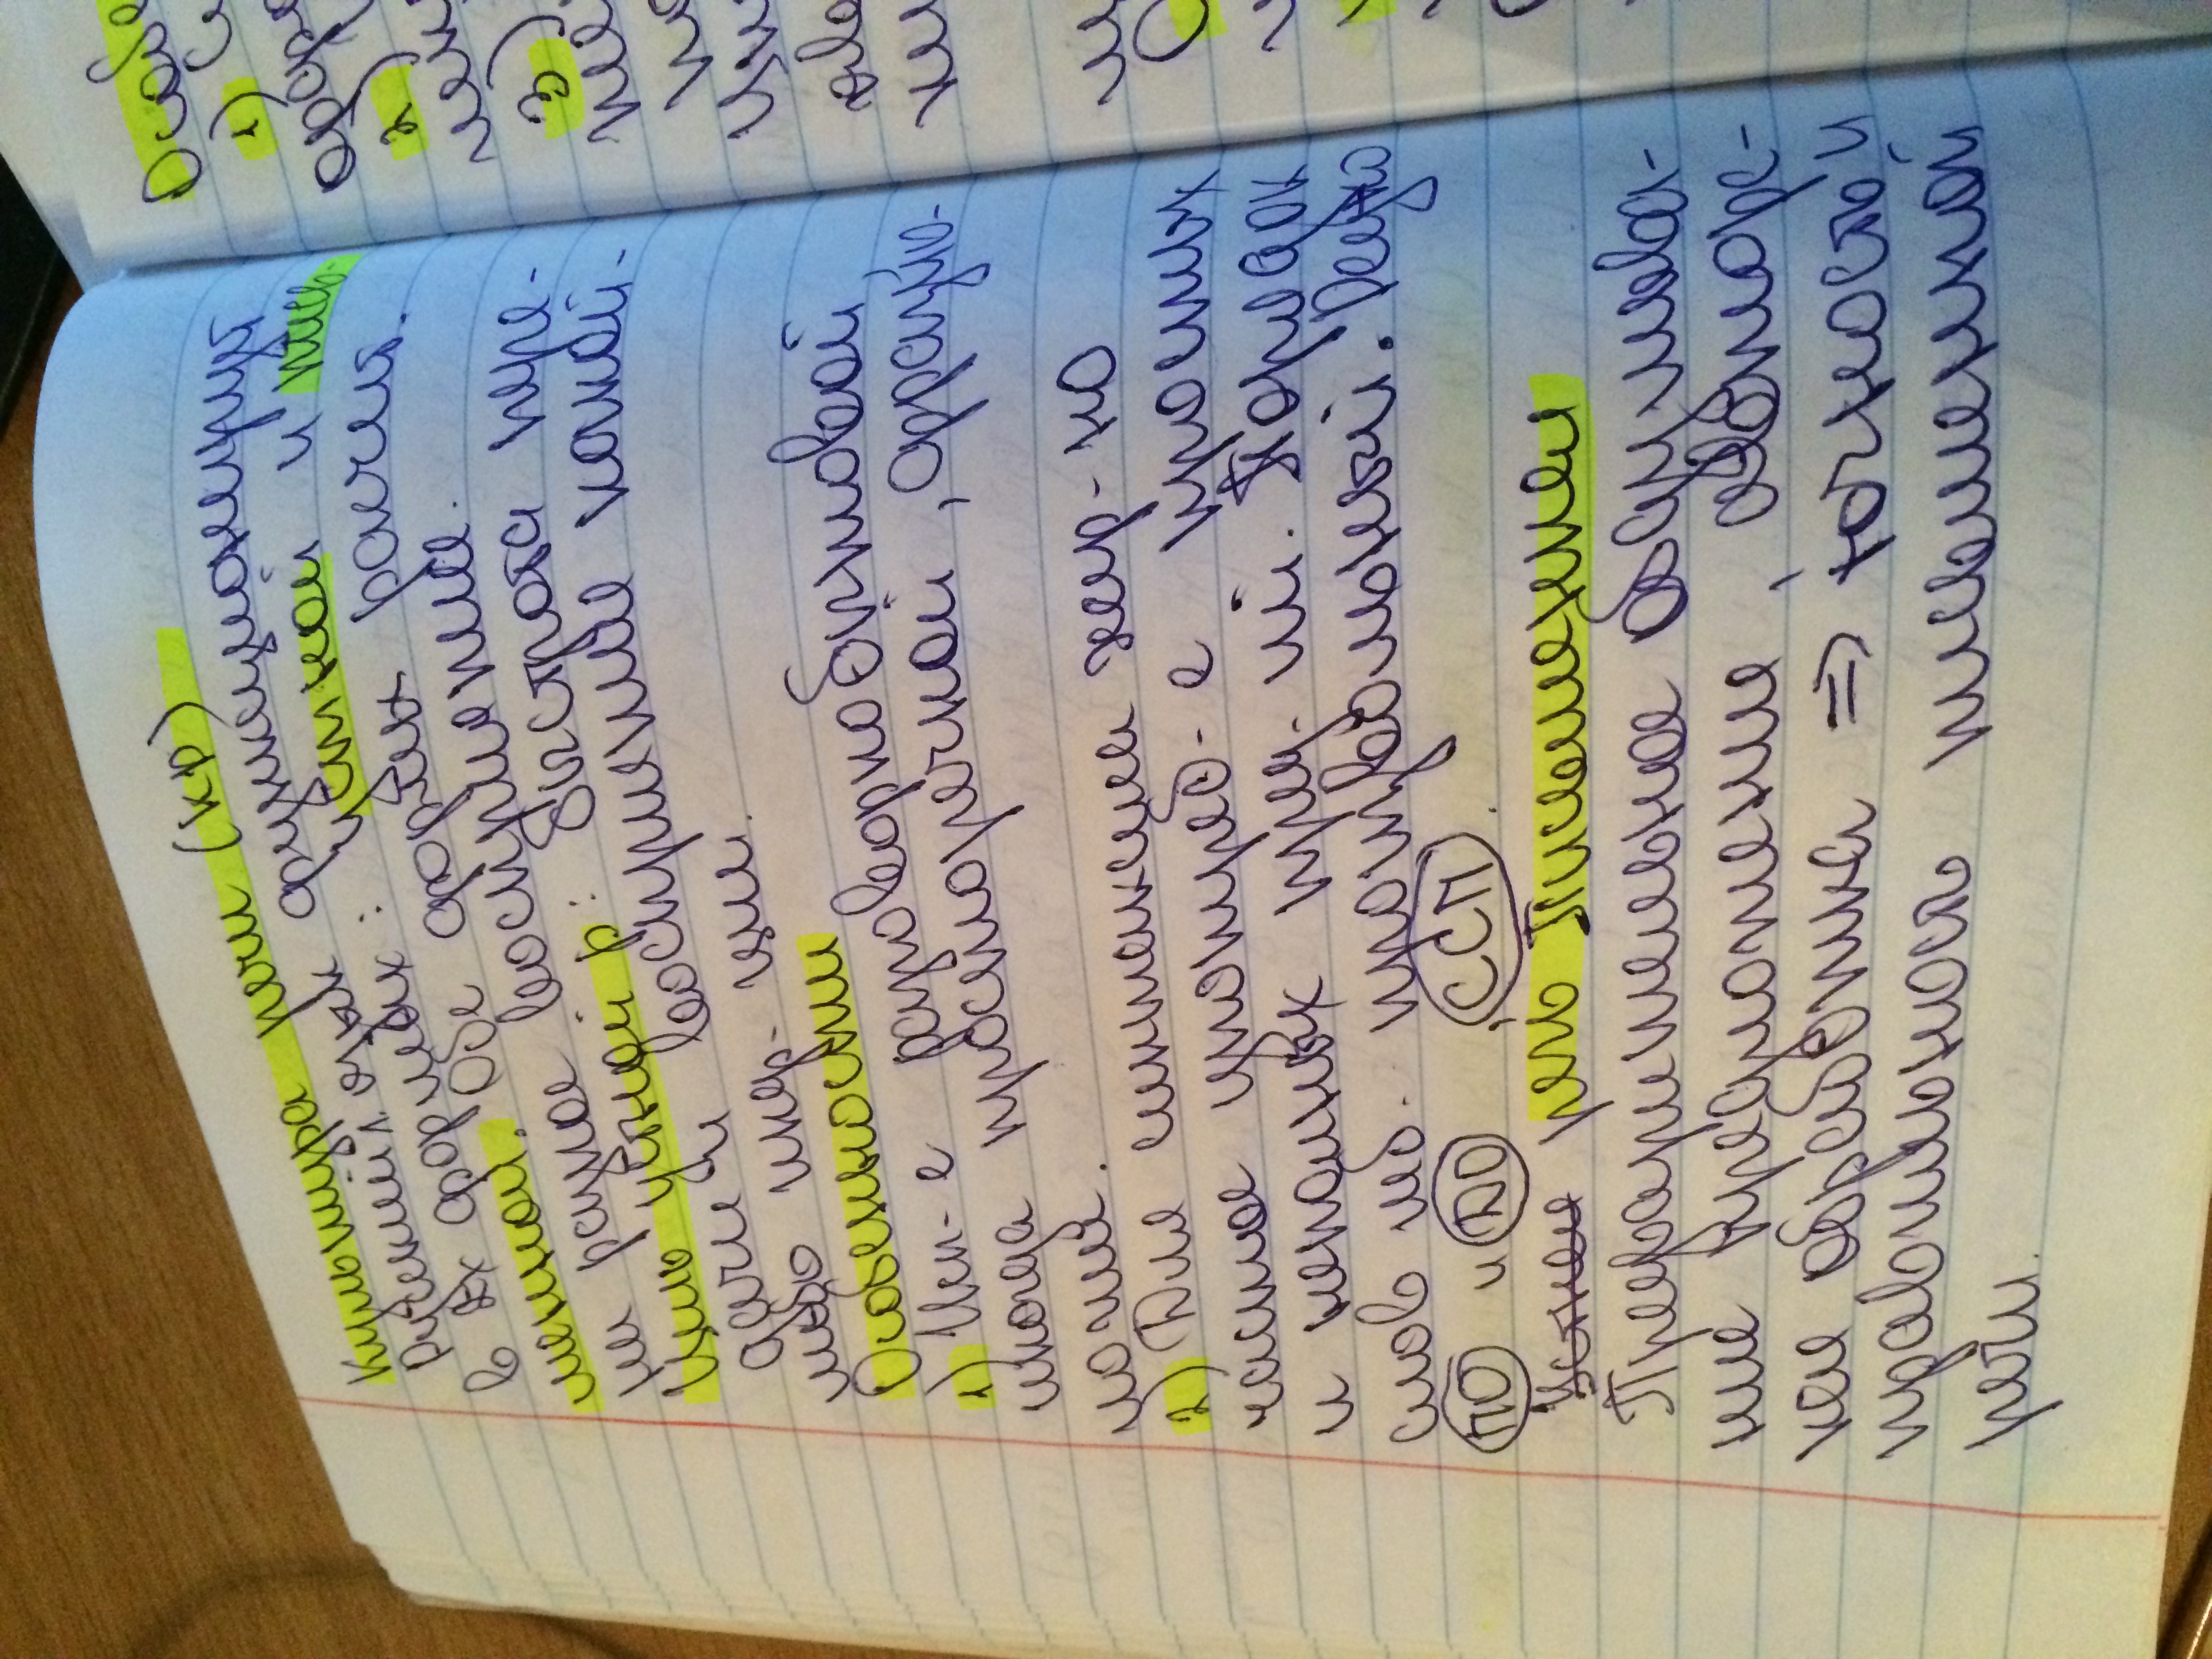 Культура речи (КР)
Русский л. язык функционирует
в 2х формах: устной и пись-
менной. Обе формы расчит.
на разное восприятие.
Цель устной р: быстрота пере-
дачи и восприятие какой-
либо инф-ции.
Особенности
1) Исп-е разговорнобытовой,
иногда просторечной, фразио-
логии.
2) Для синтаксиса хар-но
частое употреб-е простых
и неполных пред-ий. Порядок
слов мб. произвольный. Редко
ПО и ДО, ССП.
Устная речь Письменная
Предварительное обдумыва-
ние предложения, авторс-
кая обработка => точность и
правильность письменной
речи.
Особе
1) Си
орфо
2)
мен
3)
по